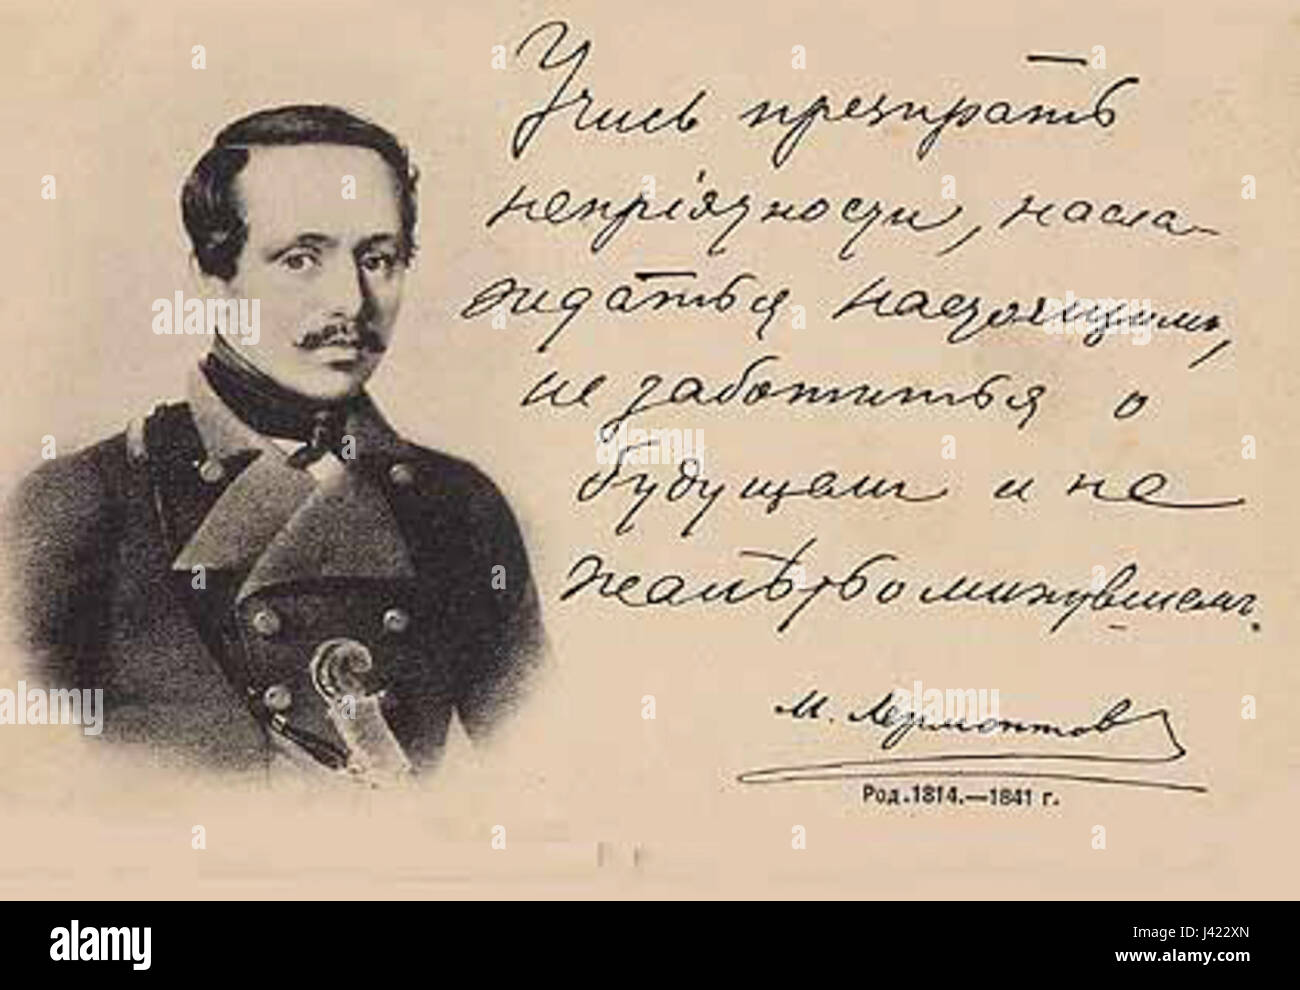 Учись презирать
непріязности, насла-
ждаться настоящимъ,
не заботиться о
будущемъ и не
жалѣть о минувшемъ.
М. Лермонтов
Род. 1814.—1841 г.
alamy stock photo
alamy
J422XN
www.alamy.com